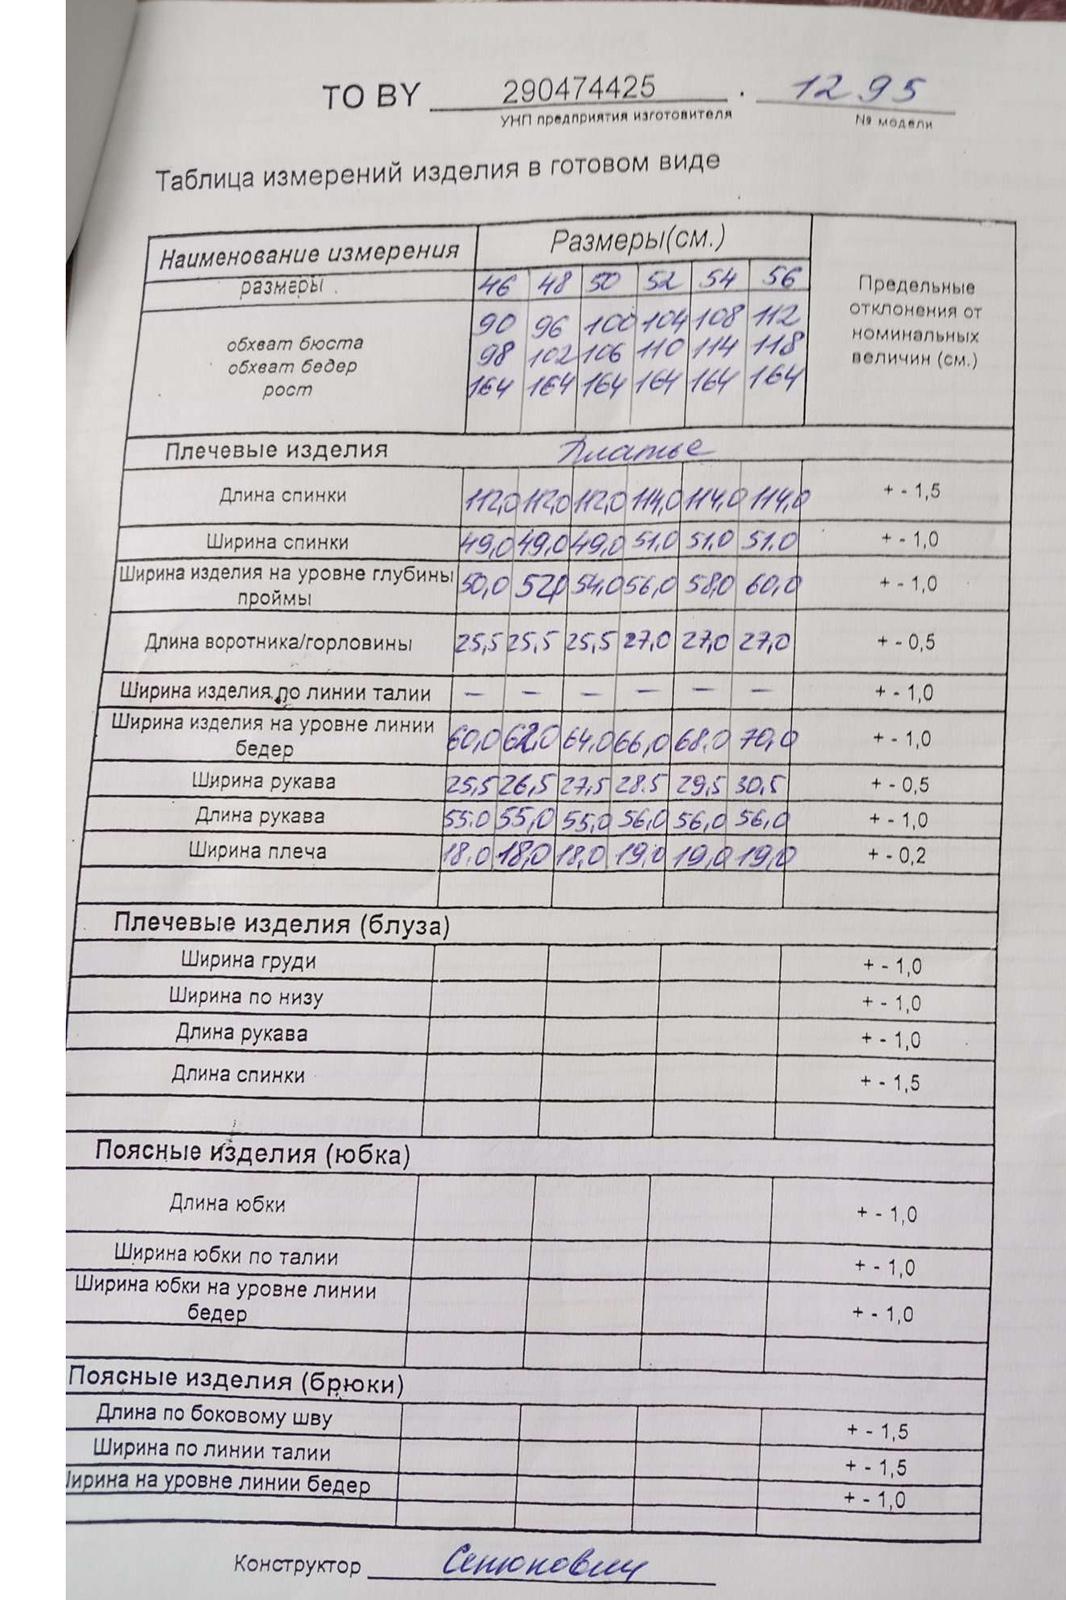 ТО BY 290474425 . 1295
УНП предприятия изготовителя № модели
Таблица измерений изделия в готовом виде
Наименование измерения Размеры(см.) Предельные отклонения от номинальных величин (см.)
размеры 46 48 50 52 54 56
обхват бюста 90 96 100 104 108 112
обхват бедер 98 102 106 110 114 118
рост 164 164 164 164 164 164
Плечевые изделия Платье
Длина спинки 112,0 112,0 112,0 114,0 114,0 114,0 + - 1,5
Ширина спинки 49,0 49,0 49,0 51,0 51.0 51.0 + - 1,0
Ширина изделия на уровне глубины проймы 50,0 52,0 54,0 56,0 58,0 60,0 + - 1,0
Длина воротника/горловины 25,5 25,5 25,5 27,0 27,0 27,0 + - 0,5
Ширина изделия по линии талии – – – – – – + - 1,0
Ширина изделия на уровне линии бедер 60,0 62,0 64,0 66,0 68.0 70,0 + - 1,0
Ширина рукава 25,5 26,5 27,5 28.5 29,5 30,5 + - 0,5
Длина рукава 55.0 55,0 55,0 56,0 56,0 56,0 + - 1,0
Ширина плеча 18.0 18,0 18,0 19,0 19,0 19,0 + - 0,2
Плечевые изделия (блуза)
Ширина груди + - 1,0
Ширина по низу + - 1,0
Длина рукава + - 1,0
Длина спинки + - 1,5
Поясные изделия (юбка)
Длина юбки + - 1,0
Ширина юбки по талии + - 1,0
Ширина юбки на уровне линии бедер + - 1,0
Поясные изделия (брюки)
Длина по боковому шву + - 1,5
Ширина по линии талии + - 1,5
Ширина на уровне линии бедер + - 1,0
Конструктор